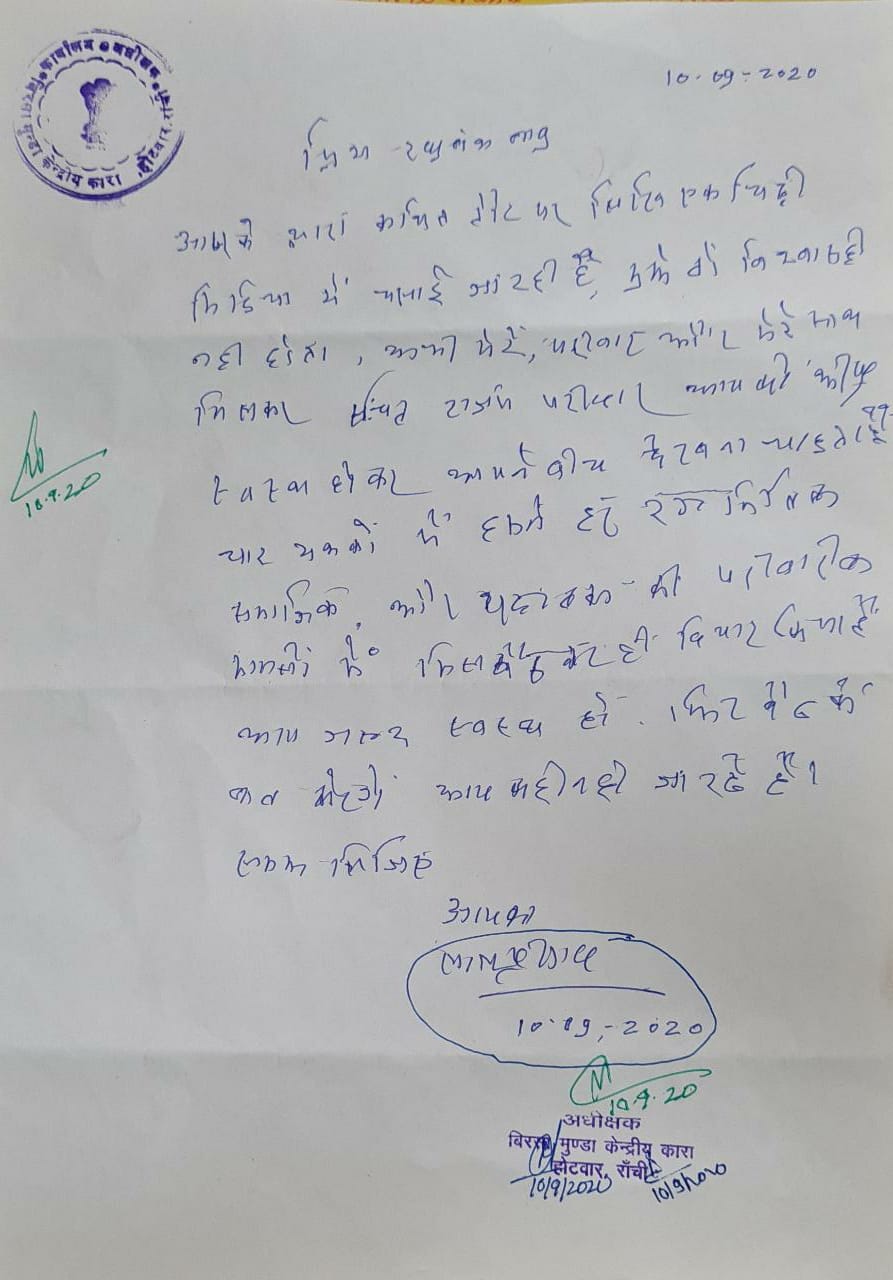 कार्यालय अधीक्षक
बिरसा मुण्डा केन्द्रीय कारा, होटवार, राँची
10-09-2020
प्रिय रघुवंश बाबु
आपके द्वारा कथित तौर पर लिखि एक चिट्ठी
मिडिया में चलाई जा रही है, मुझे तो विश्वास ही
नही होता, अभी मेरे, परिवार और मेरे साथ
मिलकर सिंचित राजद परिवार आपको शीघ्र
स्वस्थ होकर अपने बीच देखना चाहता है
चार दशकों में हमने हर
समाजिक, और यहां तक की परीवारीक
मामलों में मिल बैठकर ही विचार किया है
आप जल्द स्वस्थ हो. फिर बैठ के
बात करेगें आप कही नही जा रहे है।
समझ लिजिए
10.9.20
आपका
लालू प्रसाद
10-09-2020
10.9.20
अधीक्षक
बिरसा मुण्डा केन्द्रीय कारा
होटवार, राँची
10/9/2020
10/9/2020